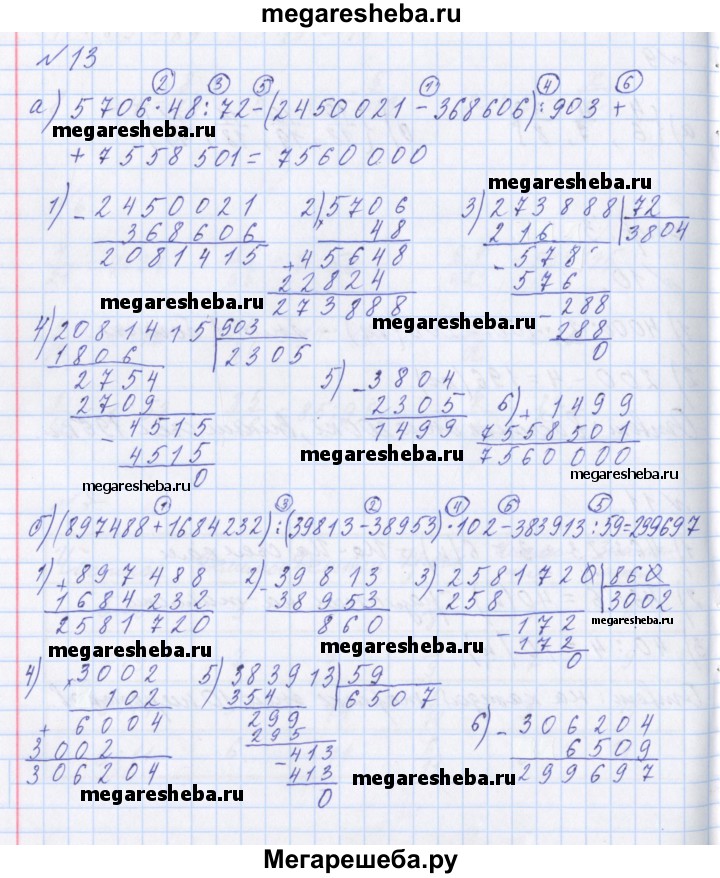 megaresheba.ru
№13
а) 5706·48:72-(2450021-368606):903+
② ③ ⑤ ① ④ ⑥
megaresheba.ru
+7558501=7560000
megaresheba.ru
1) -2450021
368606
2081415
2) 5706
48
+45648
22824
273888
3) 273888 72
216 3804
-578
576
-288
288
0
megaresheba.ru
megaresheba.ru
4) 2081415 903
1806 2305
2754
2709
-4515
4515
0
5) -3804
2305
1499
6) +1499
7558501
7560000
megaresheba.ru
megaresheba.ru
megaresheba.ru
① ③ ② ④ ⑥ ⑤
б) (897488+1684232):(39813-38953)·102-383913:59=299697
1) +897488
1684232
2581720
2) -39813
38953
860
3) -2581720 860
258 3002
-172
172
0
megaresheba.ru
megaresheba.ru
megaresheba.ru
4) ×3002
102
+6004
3002
306204
5) 383913 59
354 6507
299
295
-413
413
0
6) -306204
6509
299697
megaresheba.ru
megaresheba.ru
Мегарешеба.ру